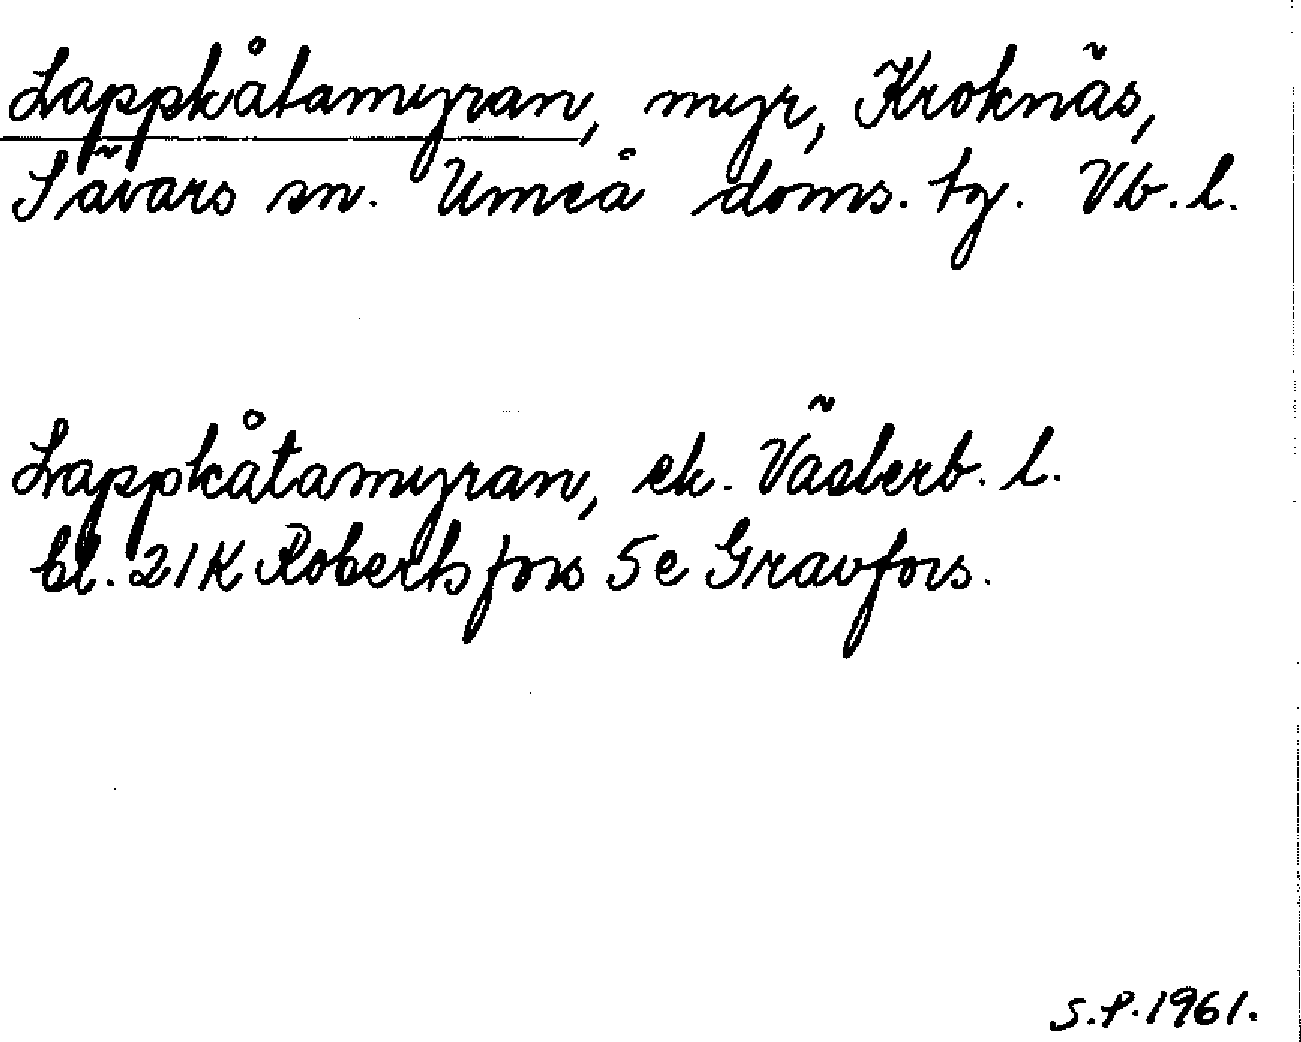 Lappkåtamyran, myr, Kroknäs,
Sävars sn. Umeå doms. tg. Vb. l.
Lappkåtamyran, ek. Västerb. l.
bl. 21K Robertsfors 5e Gravfors.
S.P. 1961.